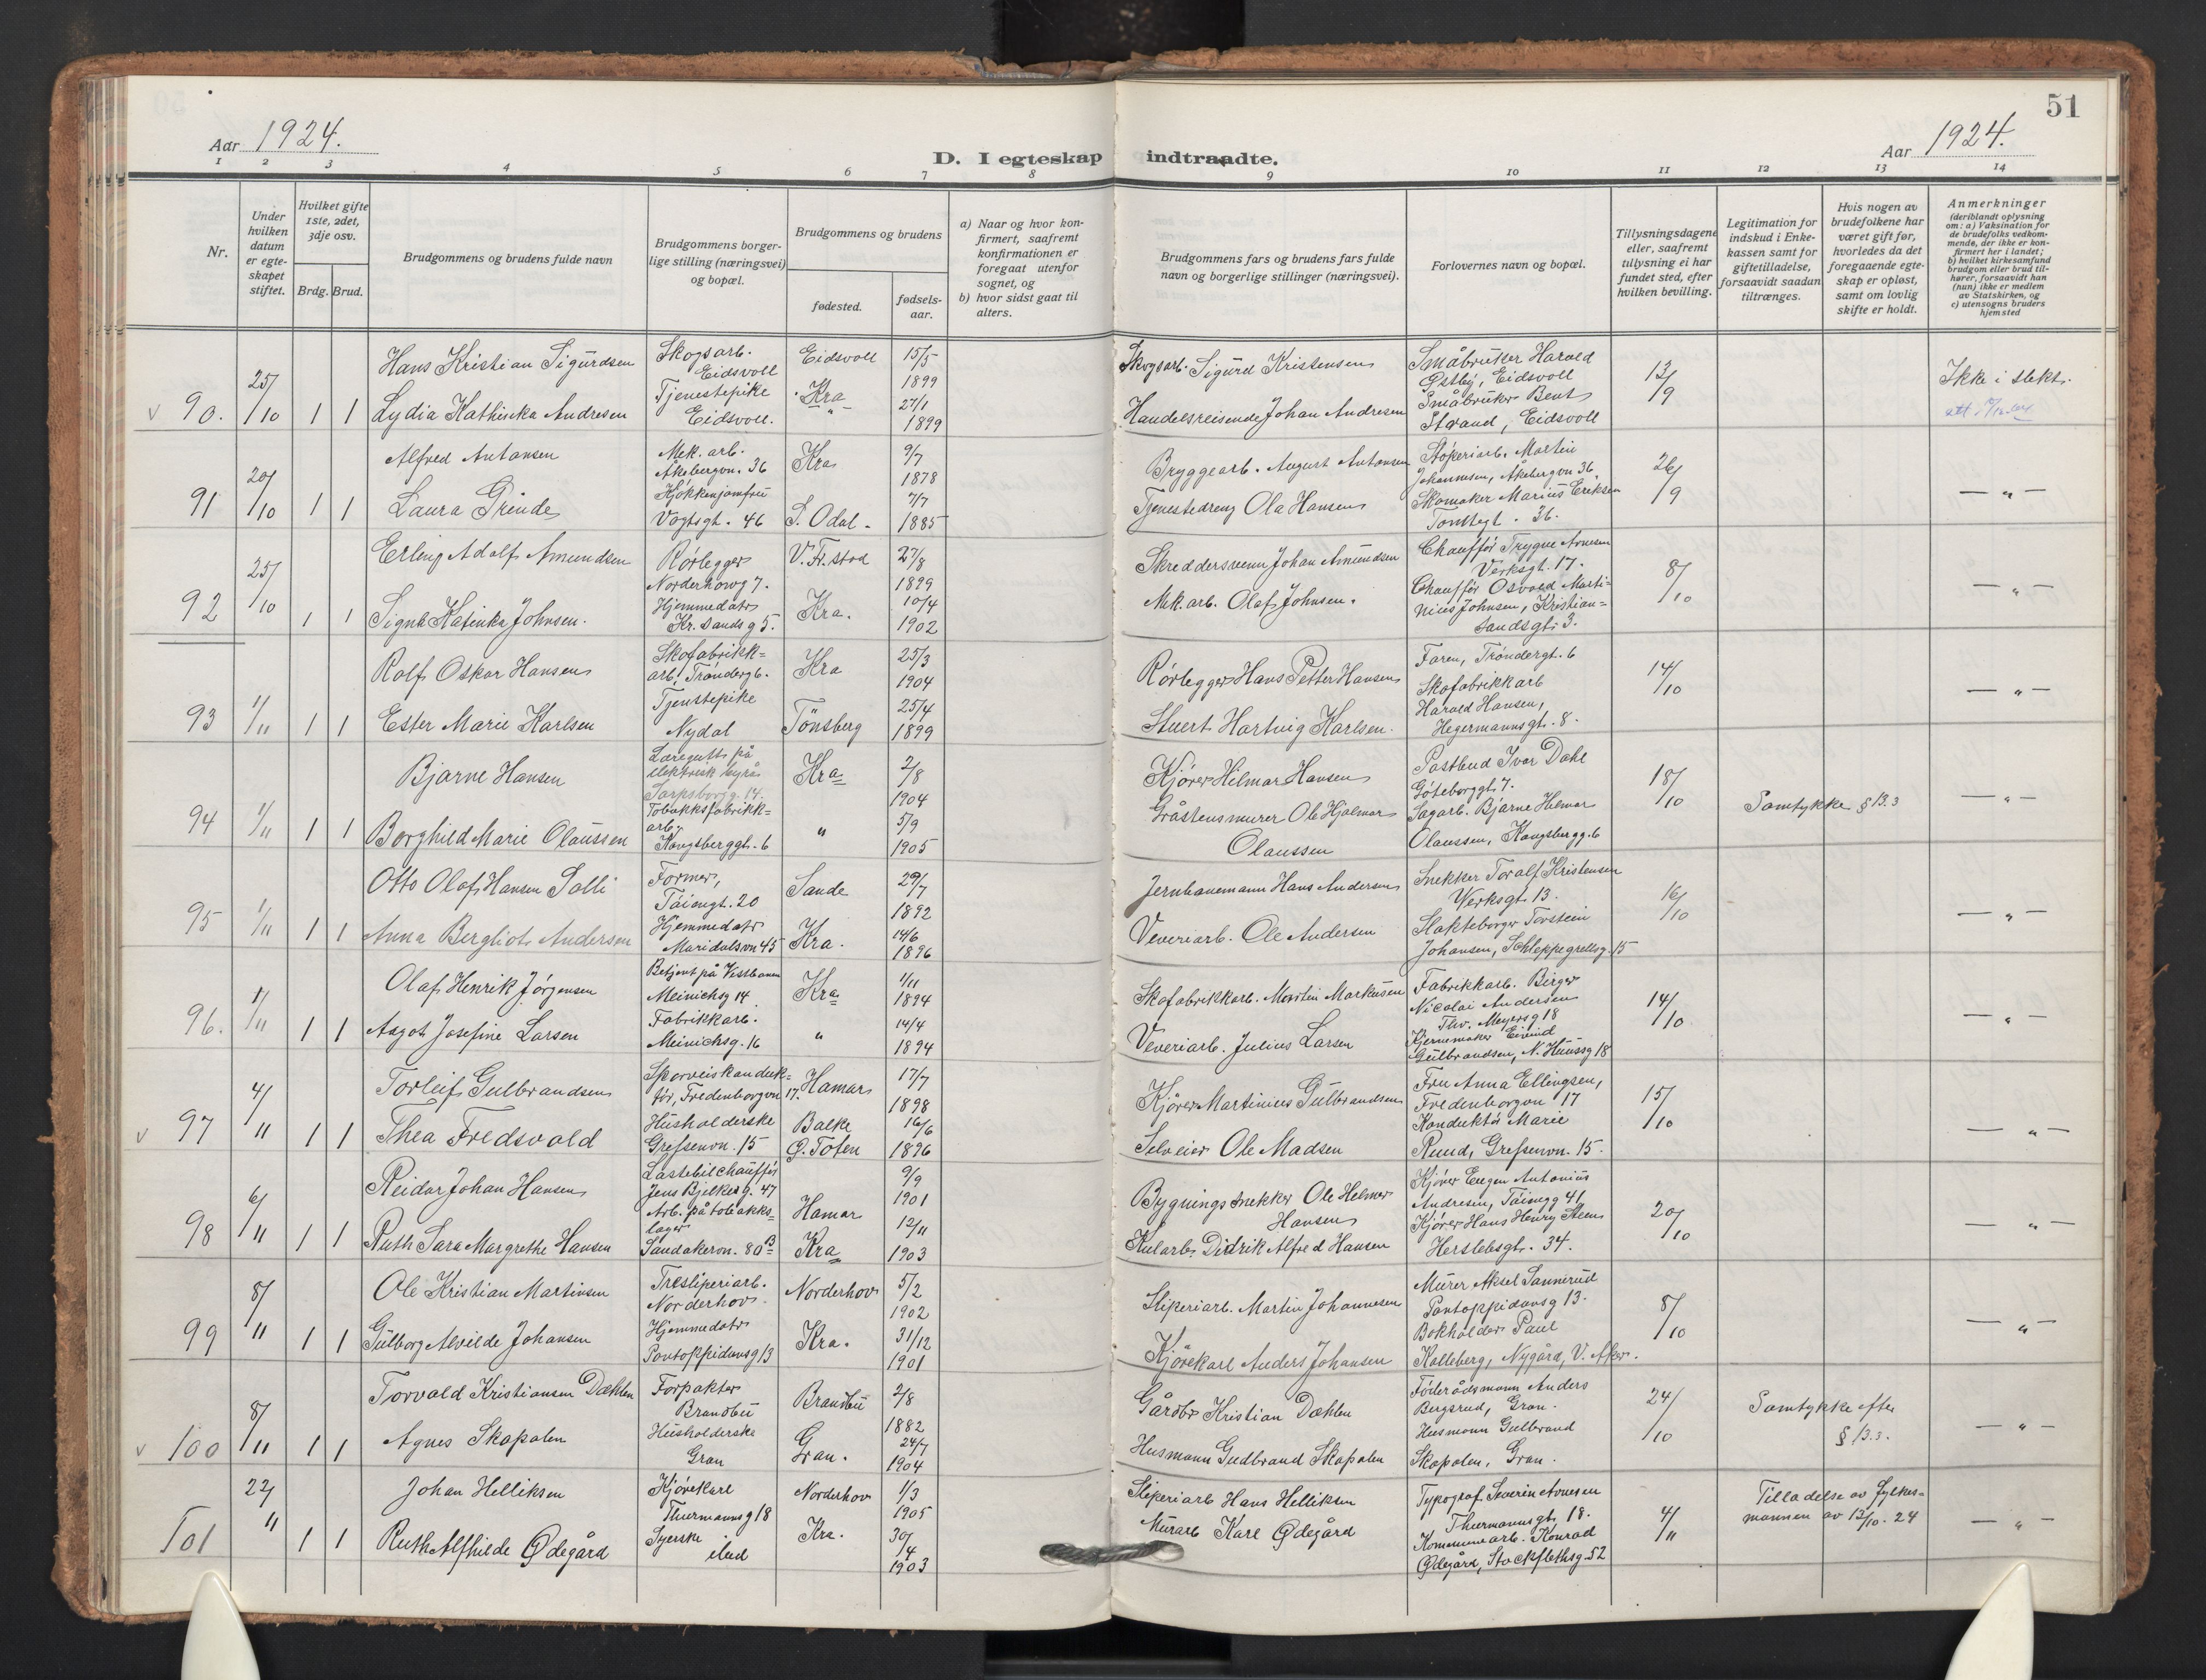 51
Aar 1924.
D. I egteskap indtraadte.
Aar 1924.
1 2 3 4 5 6 7 8 9 10 11 12 13 14
Nr.
Under hvilken datum er egteskapet stiftet.
Hvilket gifte 1ste, 2det, 3dje osv.
Brdg. Brud.
Brudgommens og brudens fulde navn
Brudgommens borgerlige stilling (næringsvei) og bopæl.
Brudgommens og brudens
fødested.
fødselsaar.
a) Naar og hvor konfirmert, saafremt konfirmationen er foregaat utenfor sognet, og
b) hvor sidst gaat til alters.
Brudgommens fars og brudens fars fulde navn og borgerlige stillinger (næringsvei).
Forlovernes navn og bopæl.
Tillysningsdagene eller, saafremt tillysning ei har fundet sted, efter hvilken bevilling.
Legitimation for indskud i Enkekassen samt for giftetilladelse, forsaavidt saadan tiltrænges.
Hvis nogen av brudefolkene har været gift før, hvorledes da det foregaaende egteskap er opløst, samt om lovlig skifte er holdt.
Anmerkninger
(deriblandt oplysning om: a) Vaksination for de brudefolks vedkommende, der ikke er konfirmert her i landet; b) hvilket kirkesamfund brudgom eller brud tilhører, forsaavidt han (hun) ikke er medlem av Statskirken, og c) utensogns bruders hjemsted
v 90. 25/10 1 1
Hans Kristian Sigurdsen
Skogsarb. Eidsvoll
Eidsvoll 15/5 1899
Skogsarb. Sigurd Kristensen
Småbruker Harald Østby, Eidsvoll
13/9
Ikke i slekt.
Lydia Kathinka Andresen
Tjenestepike Eidsvoll.
Kra 27/1 1899
Handelsreisende Johan Andresen
Småbruker Bent Strand, Eidsvoll
91 20/10 1 1
Alfred Antonsen
Mek. arb. Åkebergvn. 36
Kra 9/7 1878
Bryggearb. August Antonsen
Støperiarb. Martin Johannesen, Åkebergvn 36.
26/9
— " —
Laura Grinde
Kjøkkenjomfru Vogtsgt. 46
S. Odal. 7/7 1885
Tjenestedreng Ola Hansen
Skomaker Marius Eriksen Tomtegt. 36.
92 25/10 1 1
Erling Adolf Amundsen
Rørlegger Norderhovg 7.
V. Fr.stad 27/8 1899
Skreddersvenn Johan Amundsen
Chauffør Trygve Arnesen Verksgt. 17.
8/10
— " —
Signe Katinka Johnsen.
Hjemmedatr Kr.sandsg 5.
Kra. 10/4 1902
Mek. arb. Olaf Johnsen.
Chauffør Osvald Martinius Johnsen, Kristiansandsgt. 3.
93 1/11 1 1
Rolf Oskar Hansen
Skofabrikkarb. Trøndergt.
Kra 25/3 1904
Rørlegger Hans Petter Hansen
Faren, Trøndergt. 6
14/10
— " —
Ester Marie Karlsen
Tjenstepike Nydal
Tönsberg 25/4 1899
Stuert Hartvig Karlsen.
Skofabrikkarb Harald Hansen, Hegermannsgt. 8.
94 1/11 1 1
Bjarne Hansen
Læregutt på elektrisk byrå Sarpsborgg. 14.
Kra 2/8 1904
Kjører Hilmar Hansen
Postbud Ivar Dahl Göteborggt. 7.
18/10
Samtykke § 13.3
— " —
Borghild Marie Olaussen
Tobakksfabrikkarb. Kongsberggt. 6
" 5/9 1905
Gråstensmurer Ole Hjalmar Olaussen
Sagarb. Bjarne Helmer Olaussen, Kongsbergg. 6
95 1/11 1 1
Otto Olaf Hansen Solli
Former, Töiengt. 20
Sande 29/7 1892
Jernbanemann Hans Andersen
Snekker Toralf Kristensen Verksgt 13.
16/10
— " —
Anna Bergliot Andersen
Hjemmedatr Maridalsvn 45
Kra. 14/6 1896
Veveriarb. Ole Andersen
Slakteborger Torstein Johansen, Schleppegrellsg. 15
96. 1/11 1 1
Olaf Henrik Jørgensen
Betjent på Vestbanen Meinichsg 14
Kra 1/11 1894
Skofabrikkarb. Martin Markussen
Fabrikkarb. Birger Nicolai Andersen Thv. Meyersg 18
14/10
— " —
Aagot Josefine Larsen
Fabrikkarb. Meinichsg. 16
" 14/4 1894
Veveriarb. Julius Larsen
Kjernemaker Eivind Gulbrandsen, N. Huusg 18
v 97 4/11 1 1
Torleif Gulbrandsen
Sporveiskonduktør, Fredenborgvn 17.
Hamar 17/7 1898
Kjører Martinius Gulbrandsen
Fru Anna Ellingsen, Fredenborgvn 17
15/10
— " —
Thea Fredsvold
Husholderske Grefsenvn. 15
Balke Ø. Toten 16/6 1896
Selveier Ole Madsen
Konduktør Marie Ruud, Grefsenvn. 15.
98 6/11 1 1
Reidar Johan Hansen
Lastebilchauffør Jens Bjelkesg. 47
Hamar 9/9 1901
Bygningssnekker Ole Helmer Hansen
Kjører Eugen Antonius Andresen, Töieng 41
20/10
— " —
Ruth Sara Margrethe Hansen
Arb. på tobakkslager Sandakervn. 80B
Kra 12/11 1903
Kularb. Didrik Alfred Hansen
Kjører Hans Henry Steen Herslebsgt. 34.
99 8/11 1 1
Ole Kristian Martinsen
Tresliperiarb. Norderhov.
Norderhov 5/2 1902
Sliperiarb. Martin Johannesen
Murer Aksel Sannerud Pontoppidansg 13.
8/10
— " —
Gulborg Alvilde Johansen
Hjemmedatr Pontoppidansg 13
Kra. 31/12 1901
Kjørekarl Anders Johansen
Bokholder Paul Kolleberg, Nygård, V. Aker.
v 100 8/11 1 1
Torvald Kristiansen Dæhlen
Forpakter Brandbu
Brandbu 2/8 1882
Gårdbr Kristian Dæhlen
Føderådsmann Anders Bergsrud, Gran.
24/10
Samtykke efter § 13.3.
— " —
Agnes Skapalen
Husholderske Gran
Gran. 24/7 1904
Husmann Gudbrand Skapalen
Husmann Gulbrand Skapalen, Gran.
101 22/11 1 1
Johan Helliksen
Kjørekarl Thurmannsg 18
Norderhov 1/3 1905
Sliperiarb Hans Helliksen
Typograf Severin Arnesen Thurmannsgt. 18.
4/11
Tilladelse av Fylkesmannen av 13/10. 24
— " —
Ruth Alfhilde Ødegård
Syerske ibid
Kra. 30/4 1903
Murarb Karl Ødegård
Kommunearb. Konrad Ødegård, Stockflethsg. 52